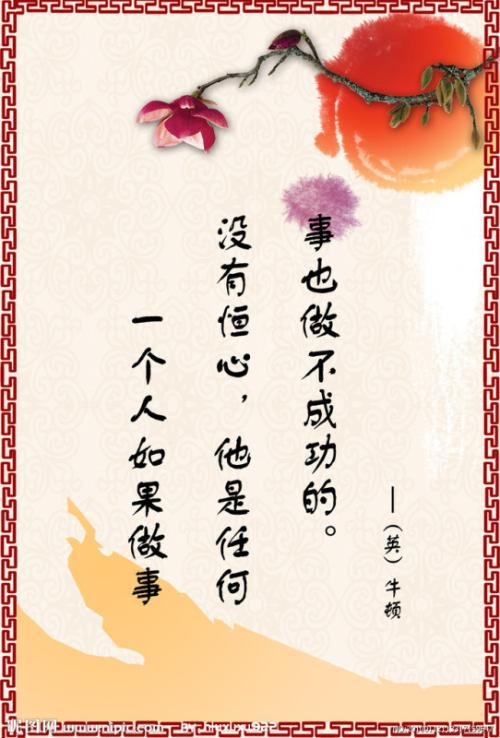 一个人如果做事
没有恒心，他是任何
事也做不成功的。
—（英）牛顿
昵图网 www.nipic.com